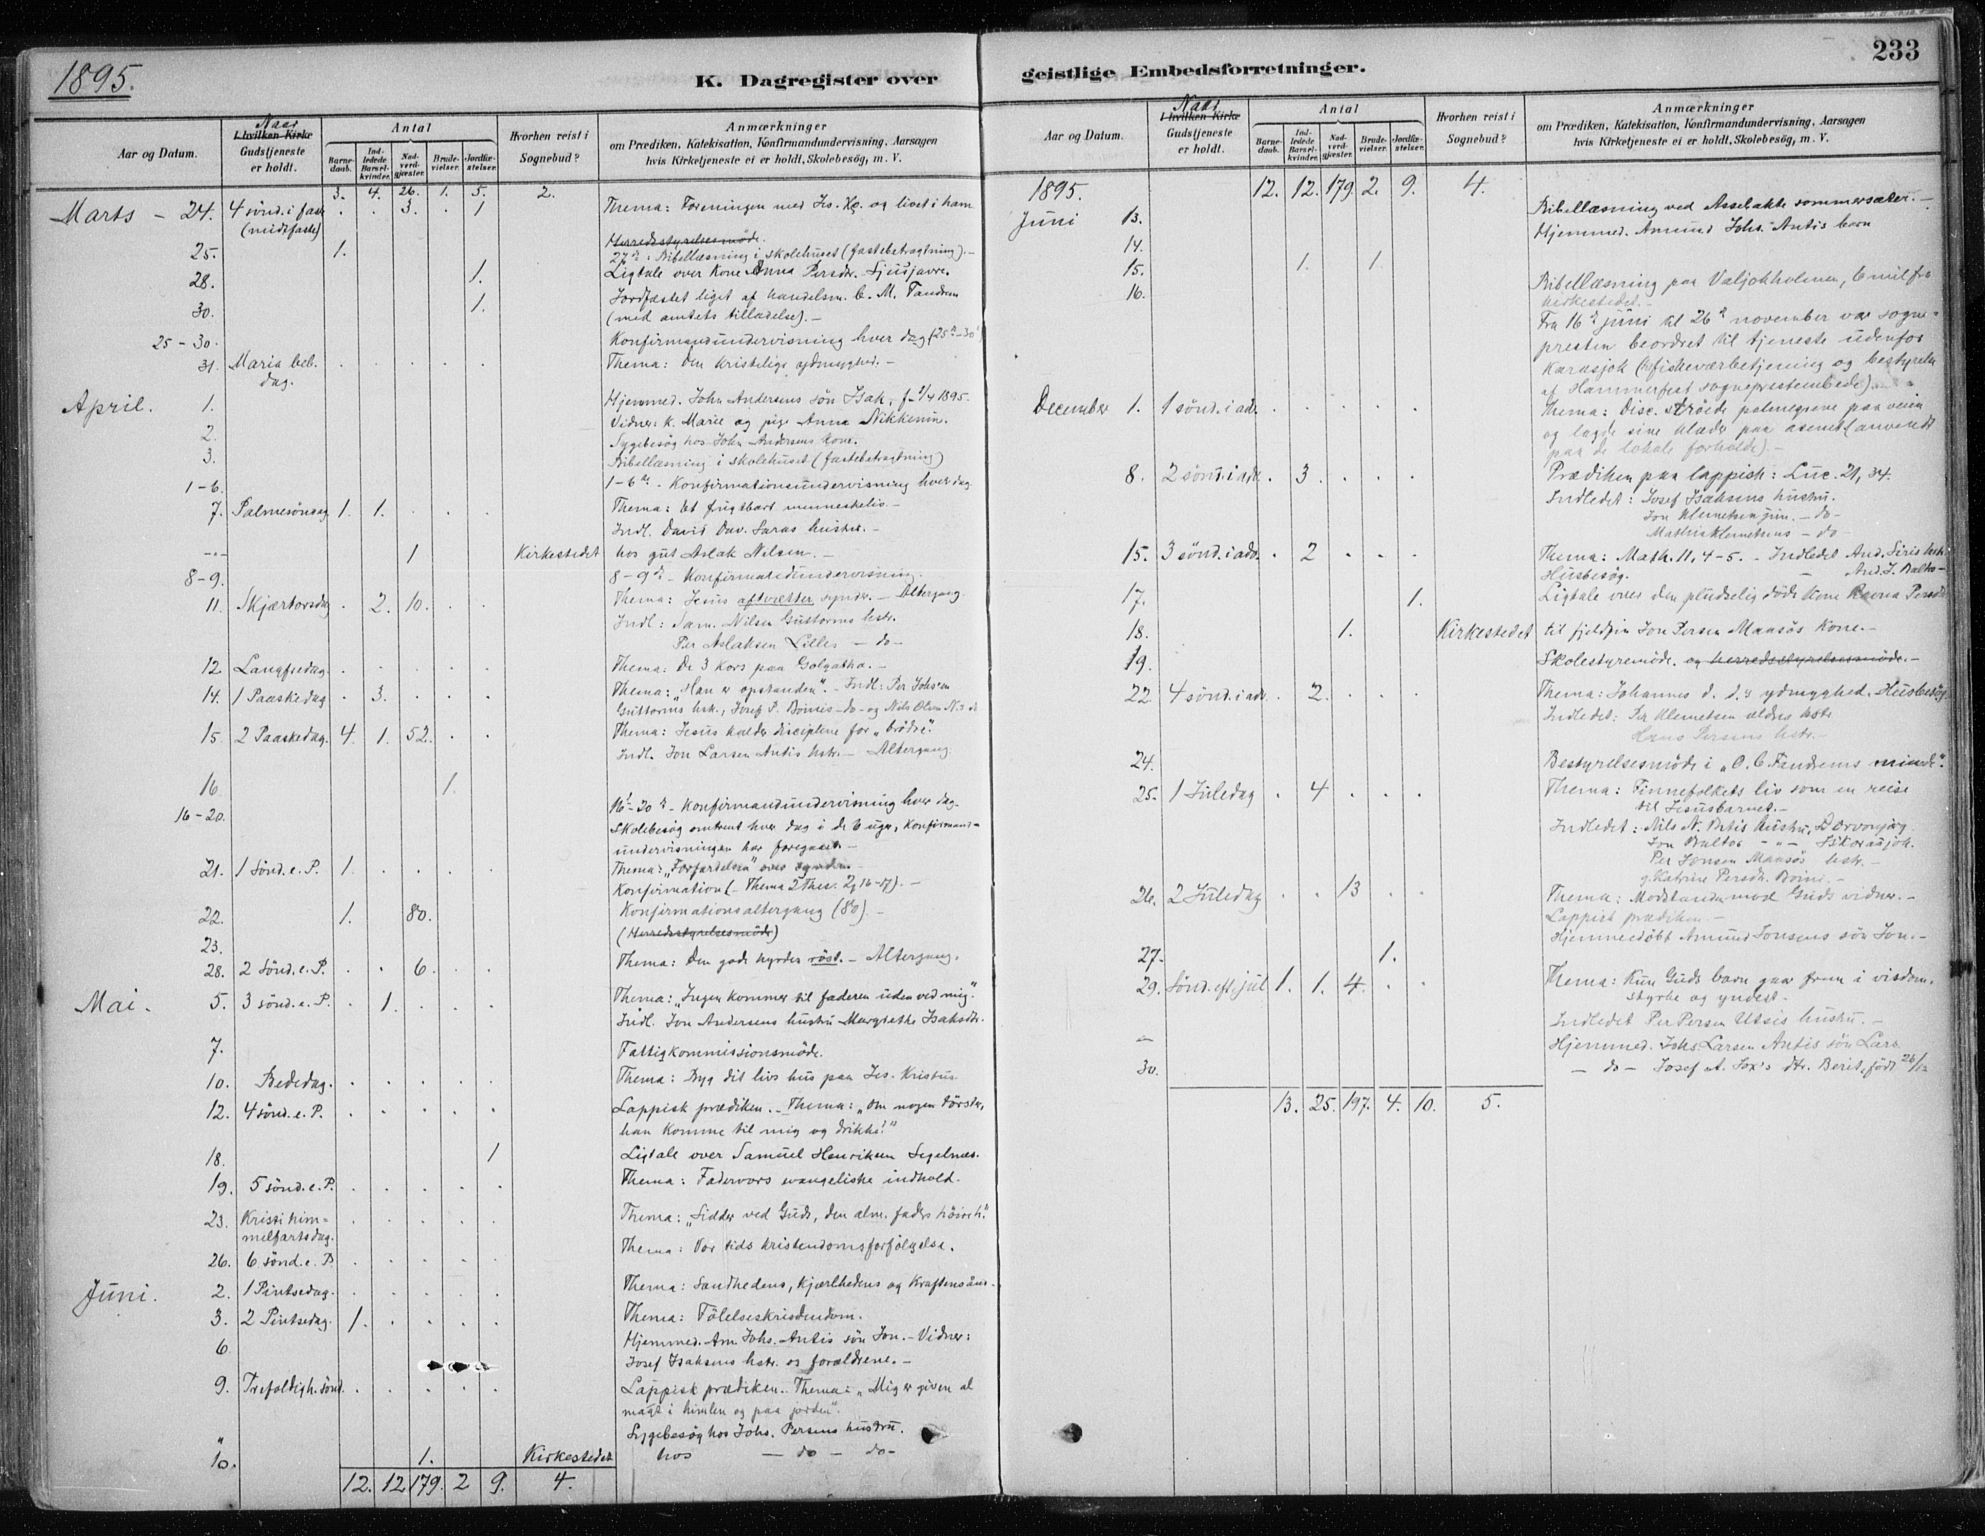 1895.
K. Dagregister over
Aar og Datum.
Naar
I hvilken Kirke
Gudstjeneste
er holdt.
Antal
Barne-
daab.
Ind-
ledede
Barsel-
kvinder.
Nad-
verd-
gjæster.
Brude-
vielser.
Jordfæ-
stelser.
Hvorhen reist i
Sognebud?
Anmærkninger
om Prædiken, Katekisation, Konfirmandundervisning, Aarsagen
hvis Kirketjeneste ei er holdt, Skolebesøg, m. V.
3. 4. 26. 1. 5. 2.
Marts – 24. 4 sönd. i faste . . 3. . 1 Thema: Foreningen med Jes. Kr. og livet i ham
(midtfaste)
Herredsstyrelsesmöde.
25. 1. 27de: Bibellæsning i skolehuset (fastebetragtning). –
28. 1. Ligtale over Kone Anna Persdr.
30. 1. Jordfæstet liget af handelsm. C. M. Fandrem
(med amtets tilladelse). –
25–30. Konfirmandundervisning hver dag (25de–30)
31. Maria beb. . . . . . Thema: Den kristelige ydmyghed. –
dag.
April. 1. Hjemmed. John Andersens sön Isak, f. 1/4 1895.
Vidner: k. Marie og pige Anna Nikkenin.
2. Sygebesøg hos John Andersens kone.
3. Bibellæsning i skolehuset (fastebetragtning)
1–6. 1–6te – Konfirmationsundervisning hver dag
7. Palmesöndag 1. 1. . . . Thema: Et frugtbart menneskeliv. –
Indl. David Dav. Saras hustru. –
–"– 1 Kirkestedet hos gut Aslak Nilsen. –
8–9. 8–9de – Konfirmandundervisning.
11. Skjærtorsdag . 2. 10. . . Thema: Jesus aftvætter synder. – Altergang.
Indl: Sam. Nilsen Guttorms hstr.
Per Aslaksen Lilles – do –
12 Langfredag. . . . . . Thema: De 3 kors paa Golgatha. –
14. 1 Paaskedag . 3. . . . Thema: „Han er opstanden". – Indl: Per Johsen
Guttorms hstr., Josef P. Boinis – do – og Nils Olsen
15. 2 Paaskedag. 4. 1. 52. . . Thema: Jesus kalder disciplene for „brödre."
Indl. Jon Larsen Antis hstr. – Altergang.
16 1.
16–20. 16–20de – Konfirmandundervisning hver dag.
Skolebesøg omtrent hver dag i de 6 uger, konfirmand-
undervisningen har foregaaet. –
21. 1 Sönd. e. P. 1. Thema: „Forfærdelsen" over synden.
Konfirmation (– Thema 2 Thes. 2, 16–17). –
22. 1. 80. Konfirmationsaltergang (80). –
23. (Herredsstyrelsesmöde)
28. 2 Sönd. e. P. . . 6. . . Thema: Den gode hyrdes röst. – Altergang.
Mai. 5. 3 sönd. e. P. . 1. . . . Thema: „Ingen kommer til faderen uden ved mig."
Indl. Jon Andersens hustru Margrethe Isaksdr.
7. Fattigkommissionsmöde.
10. Bededag. . . . . . Thema: Byg dit livs hus paa Jes. Kristus
12. 4 sönd. e. P. . . . . . Lappisk prædiken. – Thema: „Om nogen törster,
han komme til mig og drikke!"
18. 1 Ligtale over Samuel Henriksen Segelnæs.
19. 5 sönd. e. P. . . . . . Thema: Fadervors evangeliske indhold.
23. Kristi him- . . . . . Thema: „Sidder ved Guds, den alm. faders höire h."
melfartsdag.
26. 6 sönd. e. P. . . . . . Thema: Vor tids kristendomsforfölgelse.
Juni. 2. 1 Pintsedag. . . . . . Thema: Sandhedens, Kjærlhedens og Kraftens aand
3. 2 Pintsedag. 1. . . . . Thema: Fölelseskristendom.
6. Hjemmed. Am. Johs. Antis sön Jon. – Vidner:
Josef Isaksens hstr. og forældrene. –
9. Trefoldigh. sönd. . . . . . Lappisk prædiken. Thema: „Mig er given al
magt i himlen og paa jorden".
" Sygebesøg hos Johs. Persens hustru.
10. 1. Kirkestedet hos – do – do –
12. 12 179. 2 9. 4.
233
geistlige Embedsforretninger.
Aar og Datum.
Naar
I hvilken Kirke
Gudstjeneste
er holdt.
Antal
Barne-
daab.
Ind-
ledede
Barsel-
kvinder.
Nad-
verd-
gjæster.
Brude-
vielser.
Jordfæ-
stelser.
Hvorhen reist i
Sognebud?
Anmærkninger
om Prædiken, Katekisation, Konfirmandundervisning, Aarsagen
hvis Kirketjeneste ei er holdt, Skolebesøg, m. V.
1895. 12. 12. 179. 2. 9. 4.
Juni 13. Bibellæsning ved Assebakte sommersæter. –
14. Hjemmed. Amund Johs. Antis barn
15. 1. 1.
16. Bibellæsning paa Valjokholmen, 6 mil fra
kirkestedet. –
Fra 16de juni til 26de november var sogne-
presten beordret til tjeneste udenfor
Karasjok (fiskeværbetjening og bestyrelse
af Hammerfest sogneprestembede).
December 1. 1 sönd. i adv. . . . . . Thema: Disc. ströede palmegrene paa veien
og lagde sine klæder paa asenet (anvendt
paa de lokale forholde). –
8. 2 sönd. i adv. . 3. . . . Prædiken paa lappisk: Luc. 21, 34.
Indledet: Josef Isaksens hustru.
Jon Klemetsen jun. – do –
Mathis Klemetsens – do –
15. 3 sönd. i adv. . 2 . . . Thema: Math. 11, 4–5. – Indledet And. Siris hstr.
Husbesög. – And. J. Balto –
17. 1. Ligtale over den pludselig döde kone Ravna Persdr.
18. 1. Kirkestedet til fjeldfin Jon Persen Maasös kone. –
19. Skolestyremöde. og herredsstyrelsesmöde. –
22. 4 sönd. i adv. . 2. . . . Thema: Johannes d. d.s ydmyghed. Husbesög
Indledet: Per Klemetsen ældres hstr.
Hans Persens hstr. –
24. Bestyrelsesmöde i „O. C. Fandrems minde".
25. 1 Juledag . 4 . . . Thema: Finnefolkets liv som en reise
til Jesusbarnet. –
Indledet: Nils N. Batis hustru,
Jon Baltos – " –
Per Jonsen Maasös hstr. –
g. Katrine Persdr. Boine. –
26. 2 Juledag . . 13 . . Thema: Modstanden mod Guds vidner. –
Lappisk prædiken. –
27. 1. Hjemmedöbt Amund Jonsens sön Jon. –
29. Sönd. eft. jul 1. 1. 4. . . Thema: Kun Guds barn gaar frem i visdom,
styrke og yndest. –
Indledet Per Persen Utsis hustru. –
– Hjemmed. Johs. Larsen Antis sön Lars
30. – do – Josef A. dtr. Berit, födt 26/12
13. 25. 197. 4. 10. 5.